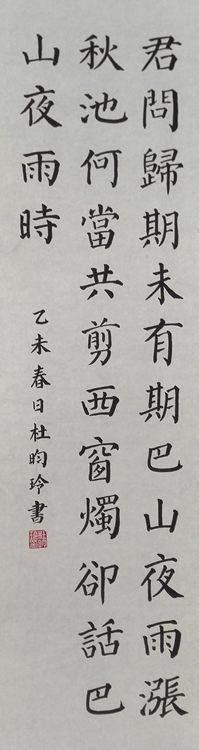 君問歸期未有期巴山夜雨漲
秋池何當共剪西窗燭卻話巴
山夜雨時
乙未春日杜昀玲書